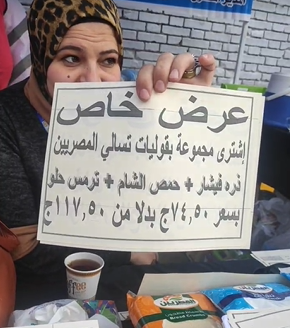 عرض خاص
إشترى مجموعة بقوليات تسالي المصريين
ذره فيشار + حمص الشام + ترمس حلو
بسعر ٧٤,٥٠ج بدلا من ١١٧,٥٠ج